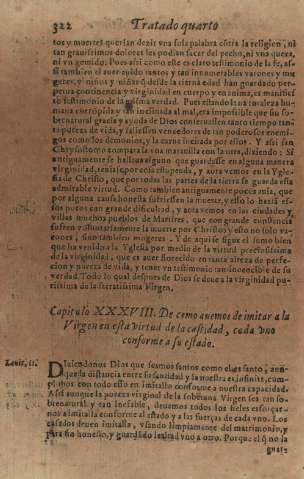 322 Tratado quarto
tos y muertes querian dezir vna sola palabra cōtra la religion, ni
tan grauissimos dolores les podian sacar del pecho, ni vna quexa,
ni vn gemido. Pues assi como este es claro testimonio de la fe, as-
si tambien el auer auido tantos y tan innumerables varones y mu
geres, y niños y niñas q̃ desde la tierna edad han guardado per-
petua continencia y virginidad en cuerpo y en anima, es manifies
to testimonio de la misma verdad. Pues estando la naturaleza hu-
mana corrōpida y tan inclinada al mal, era impossible que sin so-
brenatural gracia y ayuda de Dios conseruassen tanto tiempo tan-
ta pureza de vida, y saliessen vencedores de tan poderosos enemi-
gos como los demonios, y la carne incitada por ellos. Y assi san
Chrysostomo compara la vna marauilla con la otra, diziendo: Si
antiguamente se hallaua alguno que guardasse en alguna manera
virginidad, tenía se por cosa estupenda, y aora vemos en la Ygle-
sia de Christo, que por todas las partes de la tierra se guarda esta
admirable virtud. Como tambien antiguamente pocos auia, que
por alguna causa honesta sufriessen la muerte, y esso lo hazia es-
sos pocos con grande dificultad, y aora vemos en las ciudades y
villas muchos pueblos de Martires, que con grande constancia
sufren voluntariamente la muerte por Christo y esto no solo va-
rones, sino tambien mugeres. Y de aqui se sigue el sumo bien
que ha venido a la Yglesia por medio de la virtud preciosissima
de la virginidad, que es auer florecido en tanta alteza de perfe-
cion y pureza de vida, y tener vn testimonio tan inuencible de su
verdad. Todo lo qual despues de Dios se deue a la virginidad pu-
rissima de la sacratissima Virgen.
Capitulo XXXVIII. De como auemos de imitar a la
Virgen en esta virtud de la castidad, cada vno
conforme a su estado.
Leuit. 11.
DIziendonos Dios que seamos santos como el es santo, aun-
que la distancia entre su santidad y la nuestra es infinita, cum-
plimos con todo esso en imitallo conforme a nuestra capacidad.
Assi aunque la pureza virginal de la soberana Virgen sea tan so-
brenatural y tan inefable, deuemos todos los fieles esforçar-
nos a imitalla conforme al estado y a las fuerças de cada vno. Los
casados deuen imitalla, vsando limpiamente del matrimonio, y
para fin honesto, y guardado lealtad vno a otro. Porque el q̃ no la
guar-